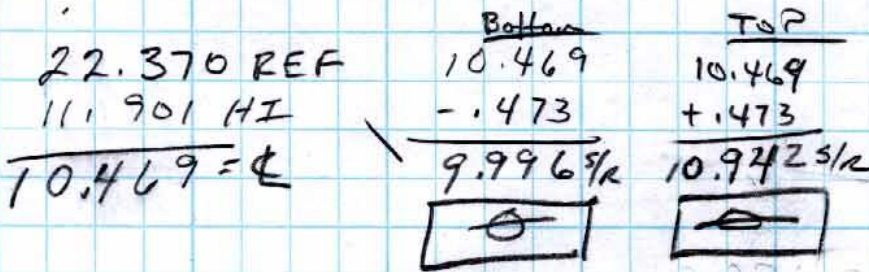 22.370 REF
11.901 HI
10.469 = ℄
Bottom
10.469
- .473
9.996 S/R
TOP
10.469
+ .473
10.942 S/R